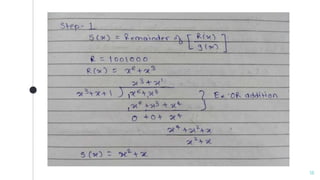 Step- 1
S(x) = Remainder of [ R(x) / g(x) ]
R = 1001000
R(x) = x⁶+x³
x³+x¹
x³+x+1 ) x⁶+x³
x⁶+x³+x⁴ } Ex-OR addition
0 +0+ x⁴
x⁴+x²+x
x²+x
S(x) = x²+x